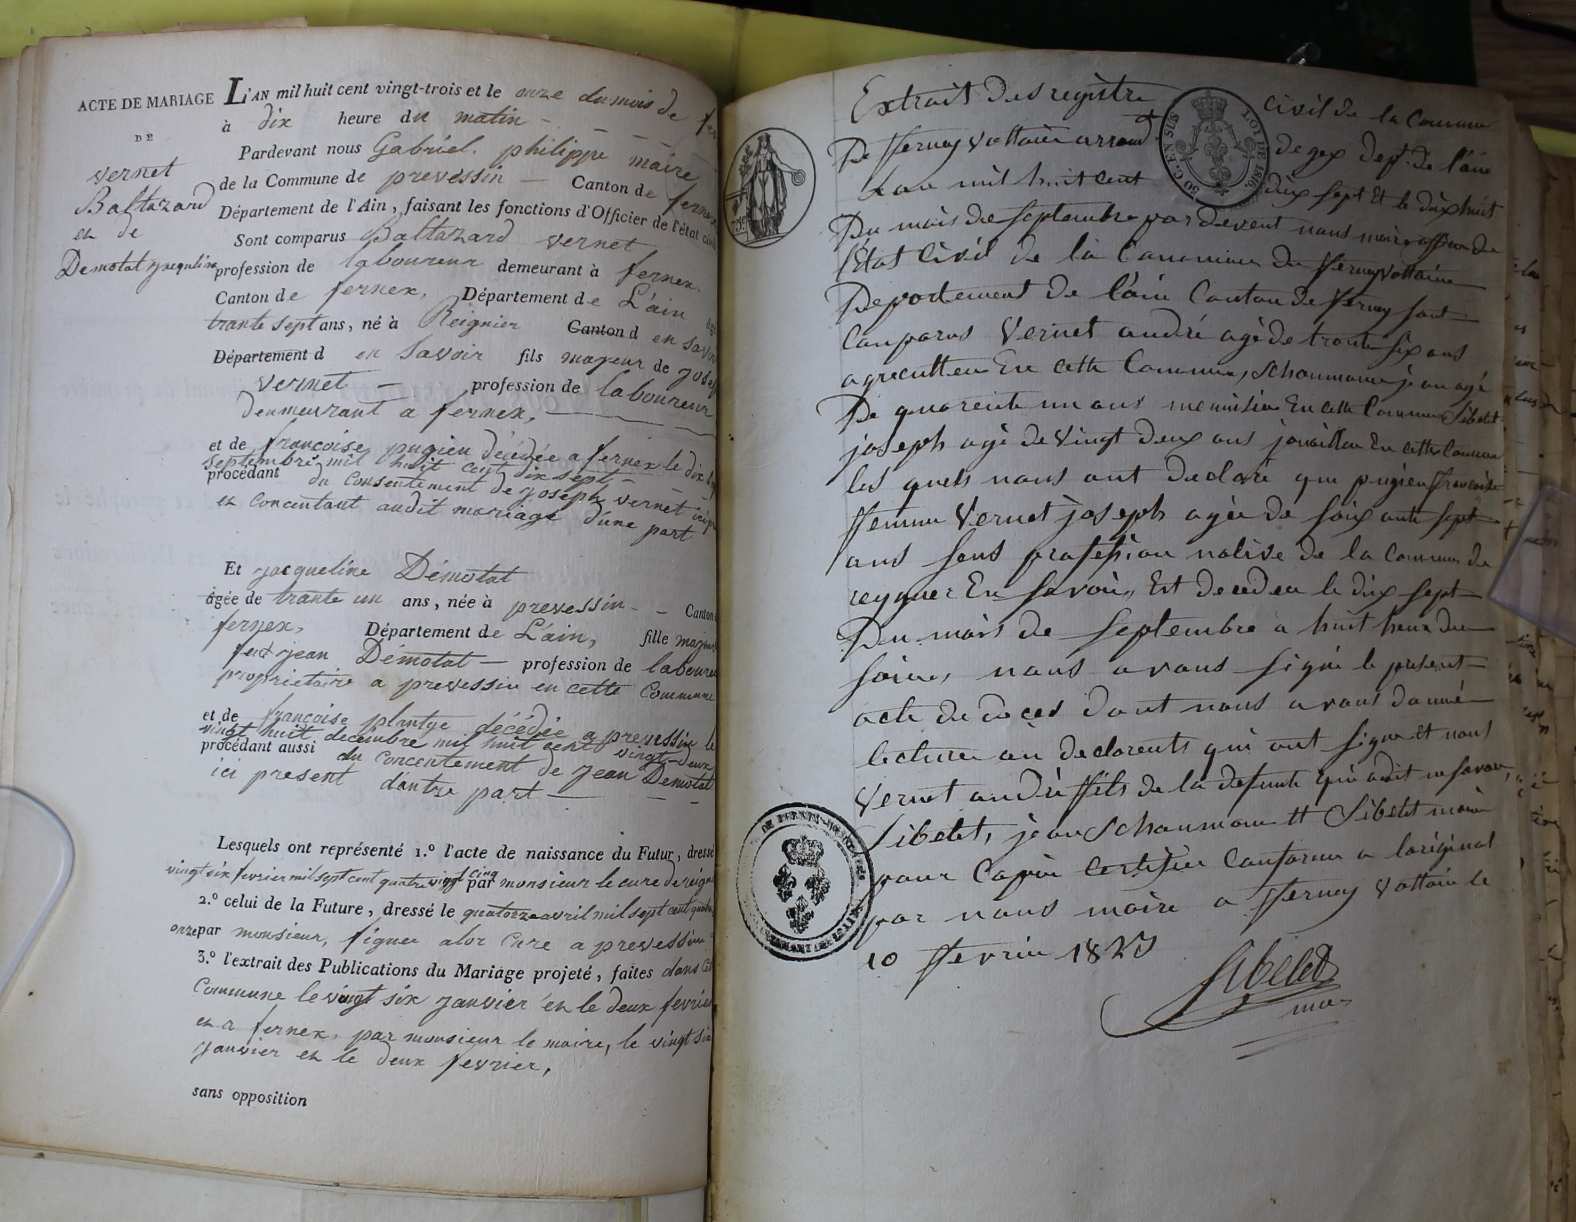 ACTE DE MARIAGE
DE
vernet
Baltazard
et de
Demotat jacqueline
L'AN mil huit cent vingt-trois et le onze du mois de
à dix heure du matin
Pardevant nous Gabriel philippe maire
de la Commune de prevessin Canton de fernex
Département de l'Ain, faisant les fonctions d'Officier de l'état
Sont comparus Baltazard vernet
profession de laboureur demeurant à fernex
Canton de fernex, Département de L'ain
trante sept ans, né à Reignier Canton d en Savoi
Département d en Savoir fils mageur de
vernet — profession de laboureur
deumeurant a fernex,
et de françoise pugieu décédée a fernex le dix
septembre mil huit cent dix sept
procédant du consentement de joseph vernet
et concentant audit mariage d'une part
Et jacqueline Démotat
âgée de trante un ans, née à prevessin Canton
fernex, Département de L'ain, fille
feu jean Démotat — profession de
proprietaire a prevessin en cette Commune
et de françoise plantye décédée a prevessin le
vingt huit decembre mil huit cent vingt deux
procédant aussi du concentement de jean Demotat
ici present dautre part
Lesquels ont représenté 1.º l'acte de naissance du Futur, dressé
vingt six fevrier mil sept cent quatre vingt cinq par monsieur le cure de
2.º celui de la Future, dressé le quatorze avril mil sept cent
onze par monsieur, figuer alor Cure a prevessin
3.º l'extrait des Publications du Mariage projeté, faites dans
Commune le vingt six janvier et le deux fevrier
et a fernex, par monsieur le maire, le vingt six
janvier et le deux fevrier,
sans opposition
Extrait des registre civil de la Commune
De fferney Voltaire arrond de gex dept. de l'ain
Lan mil huit cent dix sept Et le dixhuit
Du mois de septembre par devent nous maire officier de
l'État Civil de la Commune de fferney voltaire
Département de l'ain Canton de fferney sont
Comparus Vernet andré agé de trante six ans
agriculteur En cette Commune, Schoumann jean agé
De quarente un ans menuisier En cette Commune Sibelet
joseph agé de Vingt deux ans joaillier En cette Commune
les quels nous ont declaré que pugieu francoise
ffemme Vernet joseph agée de soix ante sept
ans sans profession native de la Commune de
reygnier En Savoir, Est decedeu le dix sept
Du mois de septembre a huit heur du
soire, nous avons signé le present
acte de deces dont nous avons donné
lecture au declarents qui ont signe et nous
Vernet andré ffils de la defunte qui adit ne savoir,
Sibelet, jean Schoumann et Sibelet maire
pour Copie Certifier Conforme a loriginal
par nous maire a fferney Voltaire le
10 ffevrier 1823
Sibelet
maire
50 C. EN SUS
LOI DE 1816